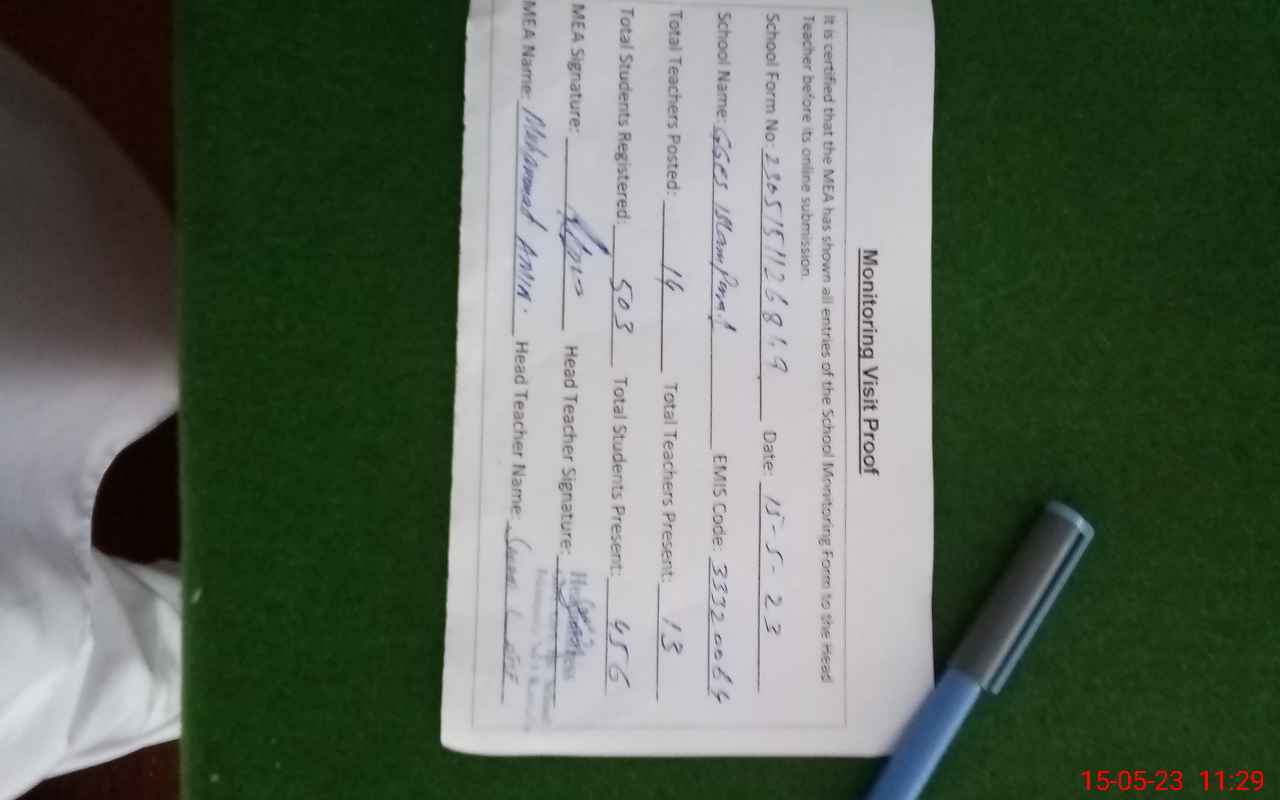 Monitoring Visit Proof
It is certified that the MEA has shown all entries of the School Monitoring Form to the Head
Teacher before its online submission.
School Form No: 2305151126869 Date: 15-5-23
School Name: GGES Islam Pura EMIS Code: 33320064
Total Teachers Posted: 14 Total Teachers Present: 13
Total Students Registered: 503 Total Students Present: 456
MEA Signature: Head Teacher Signature:
MEA Name: Muhammad Amin. Head Teacher Name:
15-05-23 11:29